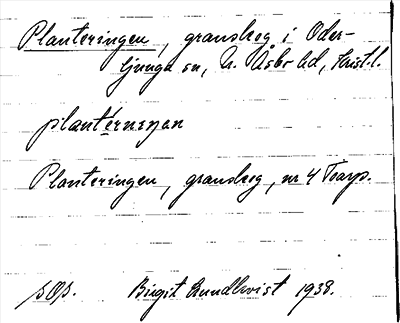 Planteringen, granskog i Oder-
ljunga sn, N. Åsbo hd, Krist. l.
plantérneŋan
Planteringen, granskog, nr 4 Toarp.
sOs. Birgit Lundkvist 1938.